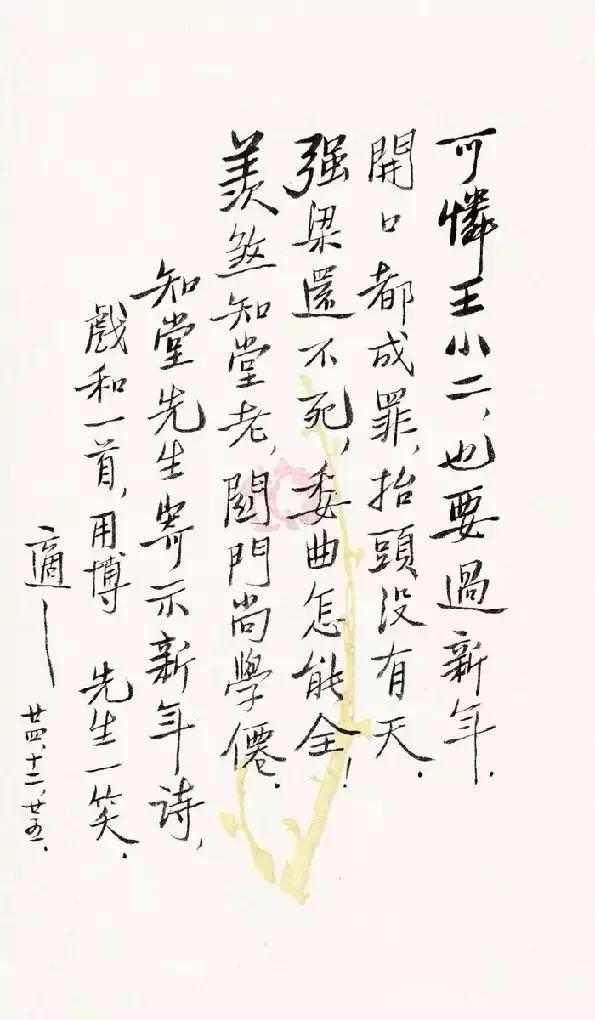 可憐王小二，也要過新年．
開口都成罪，抬頭没有天．
强梁還不死，委曲怎能全！
羨煞知堂老，閉門尚學僊．
知堂先生寄示新年诗，
戲和一首，用博 先生一笑．
適
廿四，十二，廿五．